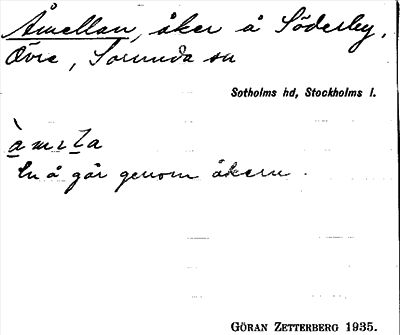 Åmellan, åker å Söderby,
Övre, Sorunda sn
Sotholms hd, Stockholms l.
En å går genom åkern.
GÖRAN ZETTERBERG 1935.